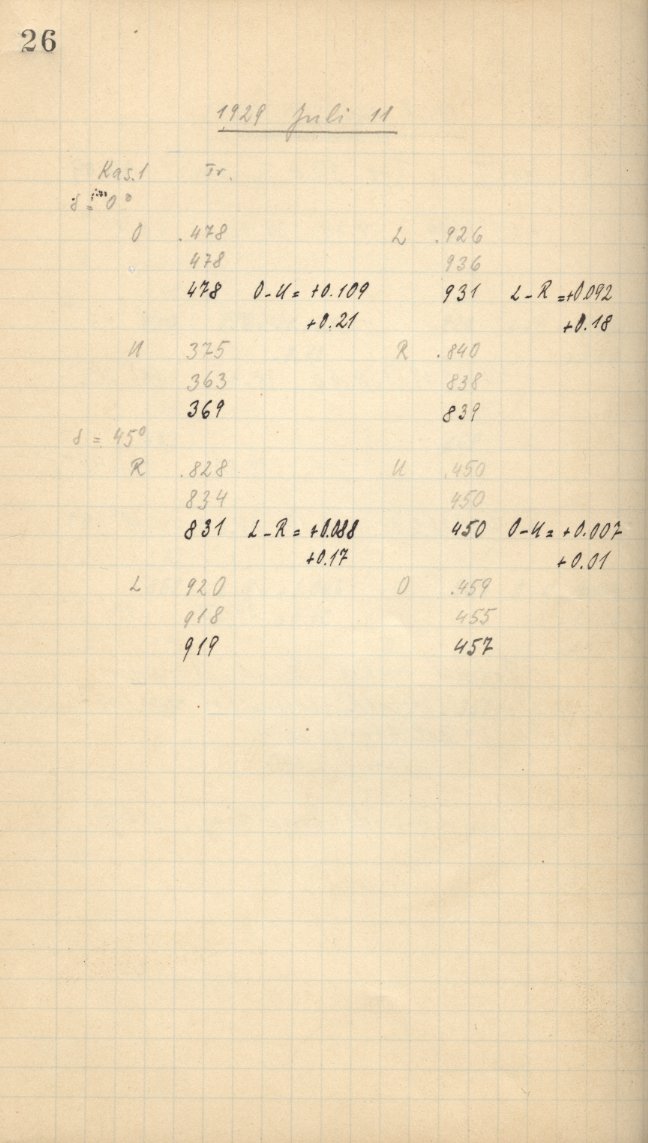 26
1929 Juli 11
Kas.1 Tr.
δ = 0°
O .478 L .926
478 936
478 O-U = +0.109 931 L-R = +0.092
+0.21 +0.18
U 375 R .840
363 838
369 839
δ = 45°
R .828 U .450
834 450
831 L-R = +0.088 450 O-U = +0.007
+0.17 +0.01
L 920 O .459
918 455
919 457